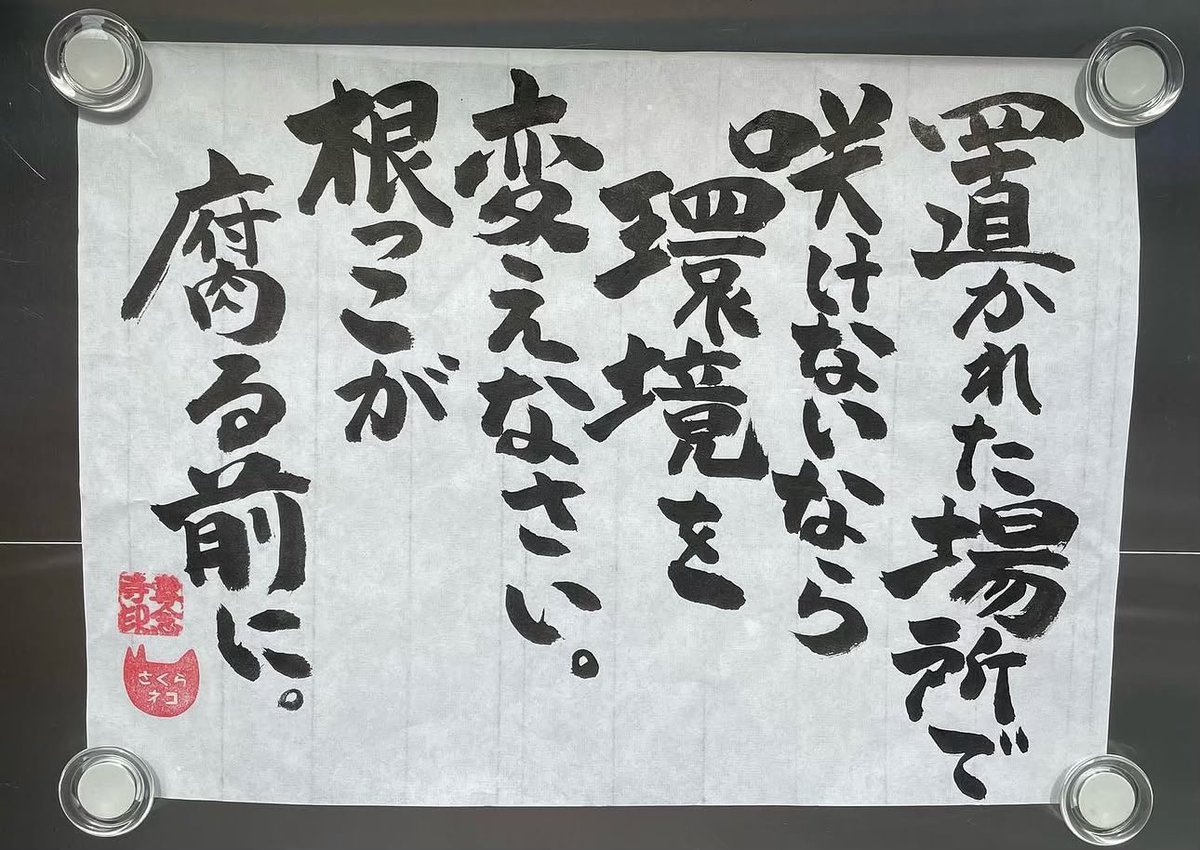 置かれた場所で
咲けないなら
環境を
変えなさい。
根っこが
腐る前に。
さくら
ネコ